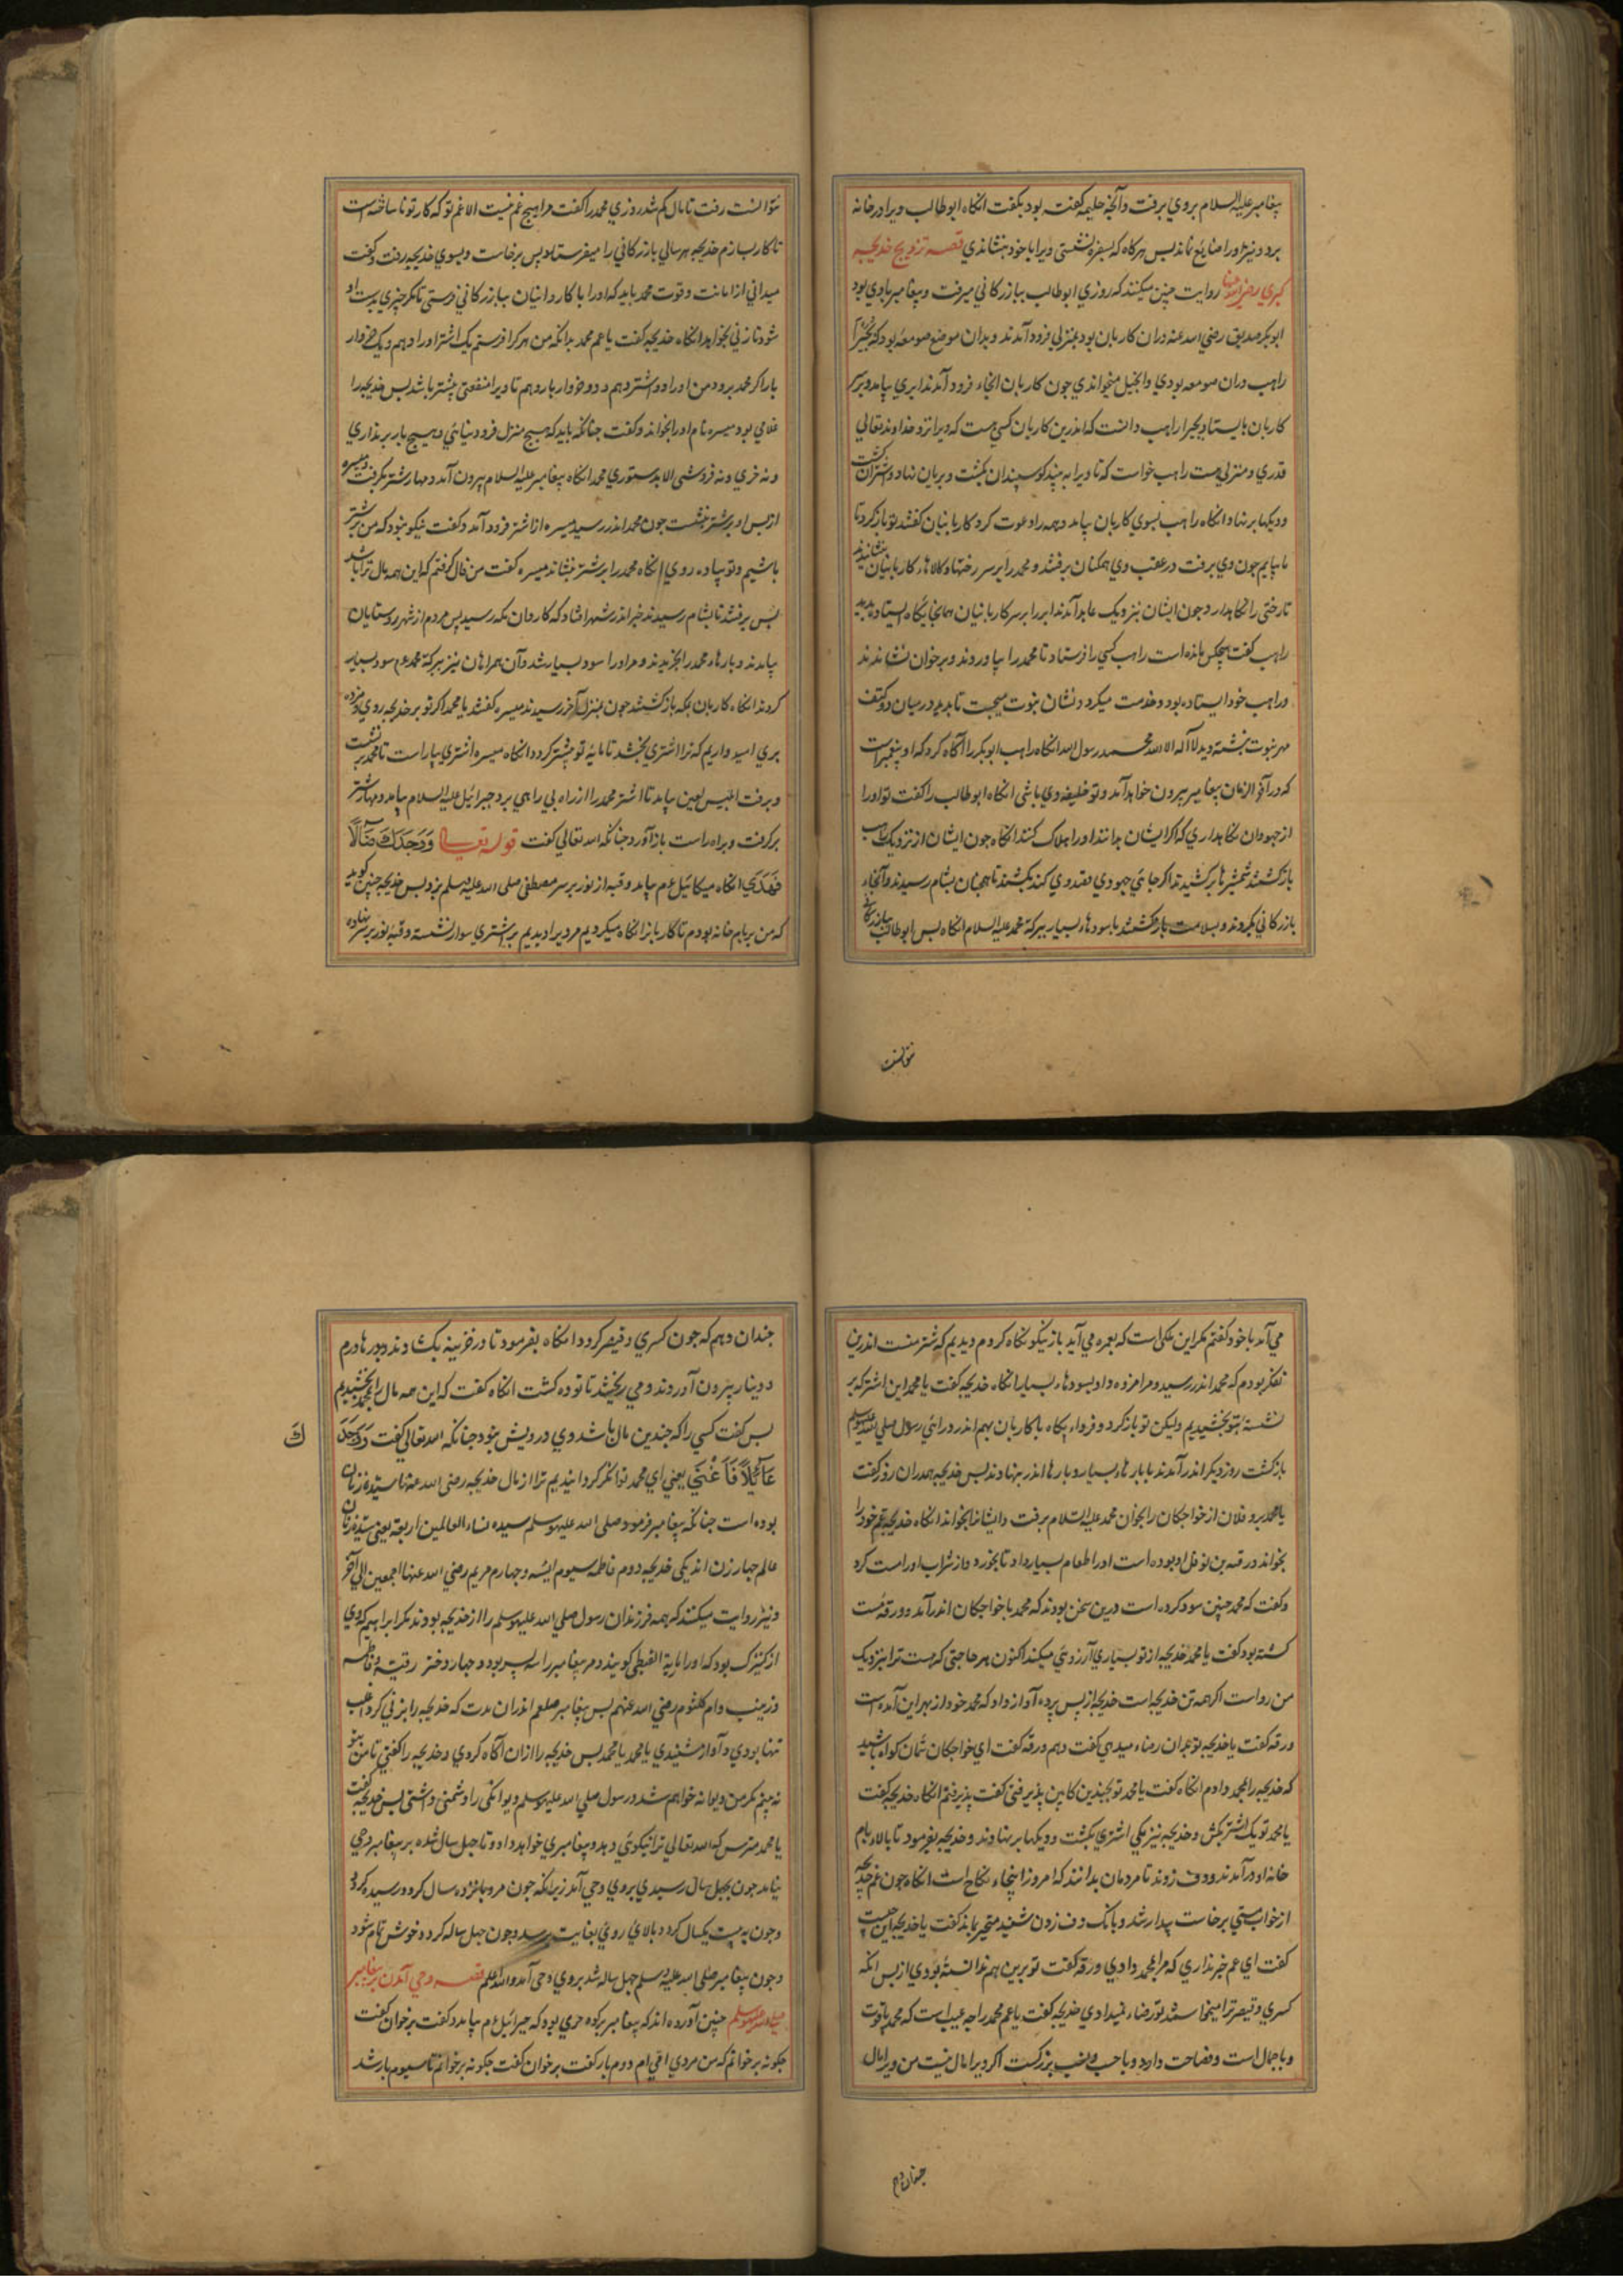 پیغامبر علیه السلام بروی برفت و آنچه حلیمه گفته بود بگفت انکاه ابوطالب ویرا در خانه
برد و نیز اورا ضایع نماند پس هرکاه که بسفره نشستی ویرا با خود بنشاندی قصه تزویج خدیجه
کبری رضی الله عنها روایت چنین میکنند که روزی ابوطالب ببازرکانی میرفت و پیغامبر با وی بود
ابوبکر صدیق رضی الله عنه دران کاربان بود بمنزلی فرود آمدند و بدان موضع صومعهٔ بود که بحیرا
راهب دران صومعه بودی و انجیل میخواندی چون کاربان انجاء فرود آمدند ابری بیامد و برسر
کاربان بایستاد بحیرا راهب دانست که اندرین کاربان کسی هست که ویرا نزد خداوند تعالی
قدری و منزلی هست راهب خواست که تا ویرا به بیند کوسپندان بکشت و بریان نهاد و اشتران کشت
و دیکها برنهاد و انکاه راهب بسوی کاربان بیامد و همه را دعوت کرد کاربانیان کفتند تو بازکرد تا
ما بیایم چون وی برفت در عقب وی همکنان برفتند و محمد را بر سر رختها و کالاهاء کاربانیان بنشاندند
تا رختی را نکاه دارد چون ایشان نزدیک عابد آمدند ابر را بر سر کاربانیان همانجایکاه ایستاد بدید
راهب کفت هیچکس مانده است راهب کسی را فرستاد تا محمد را بیاوردند و بر خوان نشاندند
و راهب خود ایستاده بود و خدمت میکرد و نشان نبوت میجست تا بدید در میان دو کتف
مهر نبوت نبشته دید لا اله الا الله محمد رسول الله انکاه راهب ابوبکر را آکاه کرد که او پیغمبر است
که در آخر الزمان پیغامبر بیرون خواهد آمد و تو خلیفهٔ وی باشی انکاه ابوطالب را کفت تو اورا
از جهودان نکاه داری که اکر ایشان بدانند اورا هلاک کنند انکاه چون ایشان از نزدیک راهب
بازکشتند شمشیرها برکشیدند اکر جائی جهودی قصد وی کند بکشند تا همچنان بشام رسیدند و آنجاء
بازرکانی بکردند و بسلامت بازکشتند با سودهاء بسیار ببرکة محمد علیه السلام انکاه پس ابوطالب ببازرکانی
نتوانست
نتوانست رفت تا مال کم شد روزی محمد را کفت مرا هیچ غم نیست الا غم تو که کار تو نا ساخته است
تا کار بسازم خدیجه هر سالی بازرکانی را میفرستاد پس برخاست و بسوی خدیجه رفت و کفت
میدانی از امانت و قوت محمد باید که اورا با کاروانیان ببازرکانی فرستی تا مکر چیزی بدست او
شود تا زنی بخواهد انکاه خدیجه کفت یا عم محمد بدانکه من هر کرا فرستم یک اشتر اورا دهم و یک خروار
بار اکر محمد برود من اورا دو اشتر دهم و دو خروار بار دهم تا ویرا منفعتی بیشتر باشد پس خدیجه را
غلامی بود میسره نام اورا بخواند و کفت چنانکه باید که هیچ منزل فرود نیائی و هیچ بار برنداری
و نه خری و نه فروشی الا بدستوری محمد انکاه پیغامبر علیه السلام بیرون آمد و مهار شتر بکرفت و میسره
از پس او بر شتر نشست چون محمد اندر رسید میسره از اشتر فرود آمد و کفت نیکو نبود که من بر شتر
باشیم و تو پیاده روی انکاه محمد را بر شتر بنشاند میسره کفت من فال کفتم که این همه مال ترا باشد
پس برفتند تا بشام رسیدند خبر اندر شهر افتاد که کاروان مکه رسید پس مردم از شهر و روستایان
بیامدند و بارهاء محمد را بخریدند و مر اورا سود بسیار شد و آن همراهان نیز ببرکة محمد عم سود بسیار
کردند انکاه کاربان بمکه بازکشتند چون بمنزل آخر رسیدند میسره کفتند یا محمد اکر تو بر خدیجه روی و مژده
بری امید داریم که ترا اشتری بخشد تا مایهٔ تو بیشتر کردد انکاه میسره اشتری بیاراست تا محمد بر نشست
و برفت ابلیس لعین بیامد تا اشتر محمد را از راه بی راهی برد جبرائیل علیه السلام بیامد و مهار شتر
برکرفت و براه راست باز آورد چنانکه الله تعالی کفت قوله تعالی وَوَجَدَكَ ضَآلًّا
فَهَدَی انکاه میکائیل عم بیامد و قبه از نور بر سر مصطفی صلی الله علیه وسلم بزد پس خدیجه چنین کوید
که من بر بام خانه بودم تا کاربانرا نکاه میکردیم مردیرا دیدیم بر اشتری سوار نشسته و قبهٔ نور بر سر نهاده
می آمد با خود کفتم مکر این ملکی است که بعمره می آید باز نیکو نکاه کردم دیدیم که شتر منست اندرین
تفکر بودم که محمد اندر رسید و مرا مژده داد بسودهاء بسیار انکاه خدیجه کفت یا محمد این اشتر که بر
نشستهٔ بتو بخشیدیم ولیکن تو بازکرد و فرداء پکاه با کاربان بهم اندر درائی رسول صلی الله علیه وسلم
بازکشت روز دیکر اندر آمدند با بارهاء بسیار و بارها اندر بنهادند پس خدیجه همدران روز کفت
یا محمد برو فلان از خواجکان را بخوان محمد علیه السلام برفت و ایشانرا بخواند انکاه خدیجه عم خود را
بخواند ورقه بن نوفل او بوده است اورا طعام بسیار داد تا بخورد و از شراب اورا مست کرد
و کفت که محمد چنین سود کرده است درین سخن بودند که محمد با خواجکان اندر آمد و ورقه مست
کشته بود کفت یا محمد خدیجه از تو بسیاری آرزوئی میکند اکنون هر حاجتی که هست ترا بنزدیک
من رواست اکر همه تن خدیجه است خدیجه از پس پرده آواز داد که محمد خود از بهر این آمده است
ورقه کفت یا خدیجه تو بدان رضاء میدهی کفت دهم ورقه کفت ای خواجکان شمان کواه باشید
که خدیجه را بمحمد دادم انکاه کفت یا محمد تو بچندین کابین پذیرفتی کفت پذیرفتم انکاه خدیجه کفت
یا محمد تو یک اشتر بکش و خدیجه نیز یکی اشتری بکشت و دیکها برنهادند و خدیجه بفرمود تا بالاء بام
خانهٔ او درآمدند و دف زدند تا مردمان بدانند که امروز اینجاء نکاح است انکاه چون عم خدیجه
از خواب مستی برخاست بیدار شد و بانک دف زدن شنید متحیر بماند کفت یا خدیجه این چیست
کفت ای عم خبر نداری که مرا بمحمد دادی ورقه کفت تو برین هم ندانستهٔ بودی از پس انکه
کسری و قیصر ترا میخواستند تو رضاء نمیدادی خدیجه کفت یا عم محمد را چه عیب است که محمد با قوت
و با جمال است و فصاحت دارد و با حسب و نسب بزرکست اکر ویرا مال نیست من ویرا مال
چندان دهم
چندان دهم که چون کسری و قیصر کردد انکاه بفرمود تا در خزینه بکشادند و درمها درم
و دینار بیرون آوردند و می ریختند تا توده کشت انکاه کفت که این همه مال را بمحمد بخشیدیم
پس کفت کسی را که چندین مال باشد وی درویش نبود چنانکه الله تعالی کفت وَوَجَدَ
كَ
عَآئِلاً فَاَغْنَی یعنی ای محمد توانکر کردانیدیم ترا از مال خدیجه رضی الله عنها سیدهٔ زنان
بوده است چنانکه پیغامبر فرمود صلی الله علیه وسلم سیده نساء العالمین اربعة یعنی سیده زنان
عالم چهار زن اند یکی خدیجه دوم فاطمه سیوم ایسه و چهارم مریم رضی الله عنها اجمعین الی آخر
و نیز روایت میکنند که همه فرزندان رسول صلی الله علیه وسلم را از خدیجه بودند مکر ابراهیم که وی
از کنیزک بود که اورا ماریة القبطی کویند و مر پیغامبر را سه پسر بود و چهار دختر رقیه و فاطمه
و زینب و ام کلثوم رضی الله عنهم پس پیغامبر صلعم اندران مدت که خدیجه را بزنی کرد اغلب
تنها بودی و آواز شنیدی یا محمد یا محمد پس خدیجه را ازان آکاه کردی و خدیجه را کفتی تا من
نه بینم مکر من دیوانه خواهم شد و رسول صلی الله علیه وسلم دیوانکی را دشمنی داشتی پس خدیجه کفت
یا محمد مترس که الله تعالی ترا نیکوئی دهد و پیغامبری خواهد داد و تا چهل سال نشده بر پیغامبر وحی
نیامد چون بچهل سال رسیدی بروی وحی آمد زیرانکه چون مرد پانزده سال کردد رسیده کردد
و چون به بیست یکسال کردد بالای روی بغایت رسد و چون چهل ساله کردد خوش تمام شود
و چون پیغامبر صلی الله علیه وسلم چهل ساله شد بروی وحی آمد والله اعلم قصه وحی آمدن بر پیغامبر
صلی الله علیه وسلم چنین آورده اند که پیغامبر بکوه حری بود که جبرائیل عم بیامد و کفت برخوان کفت
چکونه برخوانم که من مردی امی ام دوم بار کفت برخوان کفت چکونه برخوانم تا سیوم بار شد